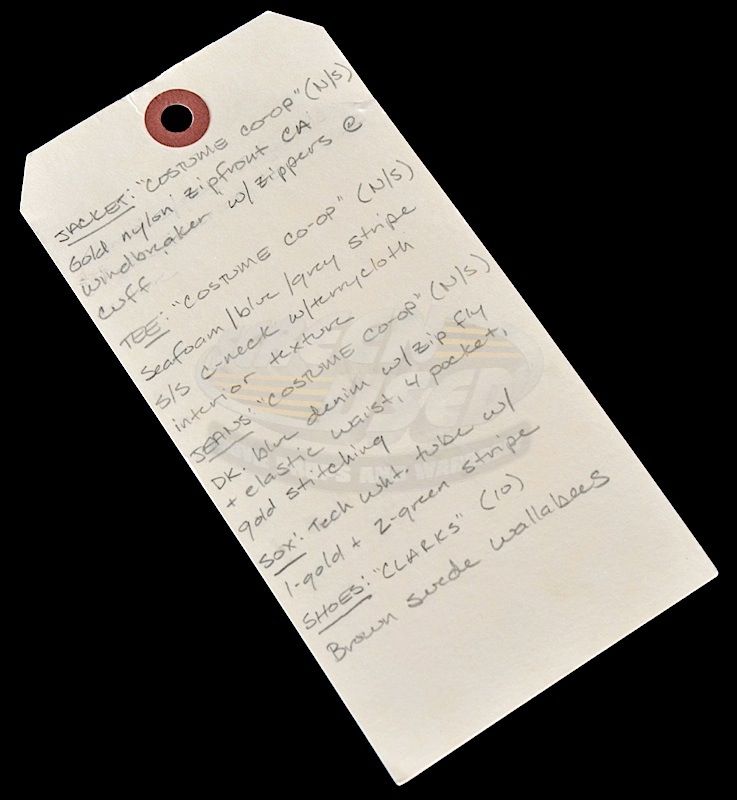 JACKET: "COSTUME CO-OP" (N/S)
Gold nylon zipfront CA
windbreaker w/ zippers @
cuff
TEE: "COSTUME CO-OP" (N/S)
Seafoam/blue/grey stripe
S/S c-neck w/terrycloth
interior texture
JEANS: "COSTUME CO-OP" (N/S)
DK. blue denim w/ zip fly
+ elastic waist, 4 pocket,
gold stitching
SOX: Tech wht. tube w/
1-gold + 2-green stripe
SHOES: "CLARKS" (10)
Brown suede wallabees
SCREEN
USED